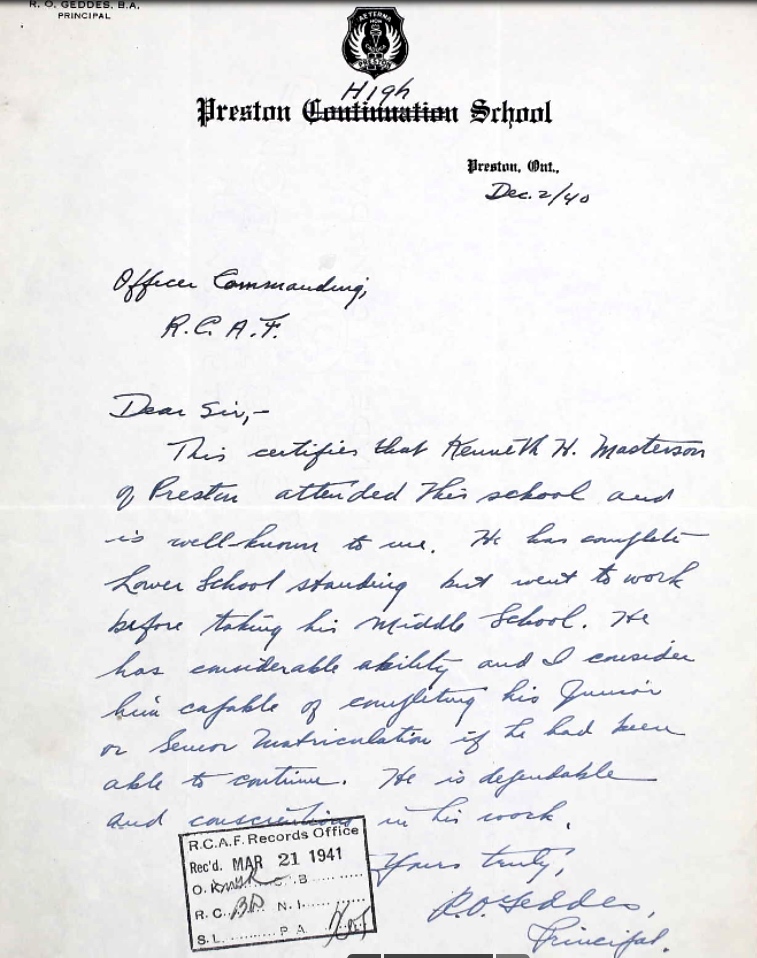 R. O. GEDDES, B.A.
PRINCIPAL
AETERNA
NON
PRESTON
High
Preston Continuation School
Preston, Ont.,
Dec. 2/40
Officer Commanding,
R.C.A.F.
Dear Sir,-
This certifies that Kenneth H. Masterson
of Preston attended this school and
is well-known to me. He has complete
Lower School standing but went to work
before taking his Middle School. He
has considerable ability and I consider
him capable of completing his Junior
or Senior Matriculation if he had been
able to continue. He is dependable
and conscientious in his work.
Yours truly,
R.O. Geddes,
Principal.
R.C.A.F. Records Office
Rec'd. MAR 21 1941
O. K. B
R. C. N. I.
S. L. P A